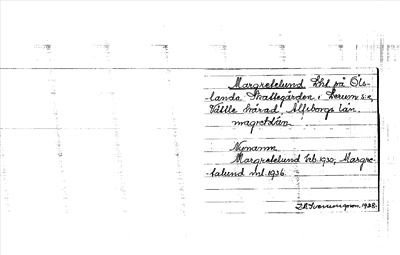 Margretelund Lht på Öls-
landa Skattegården i Lerum sn,
Vättle härad, Älfsborgs län.
magretelún
Nynamn.
Margretelund Gb. 1930, Margre-
talund ml. 1936.
1938.